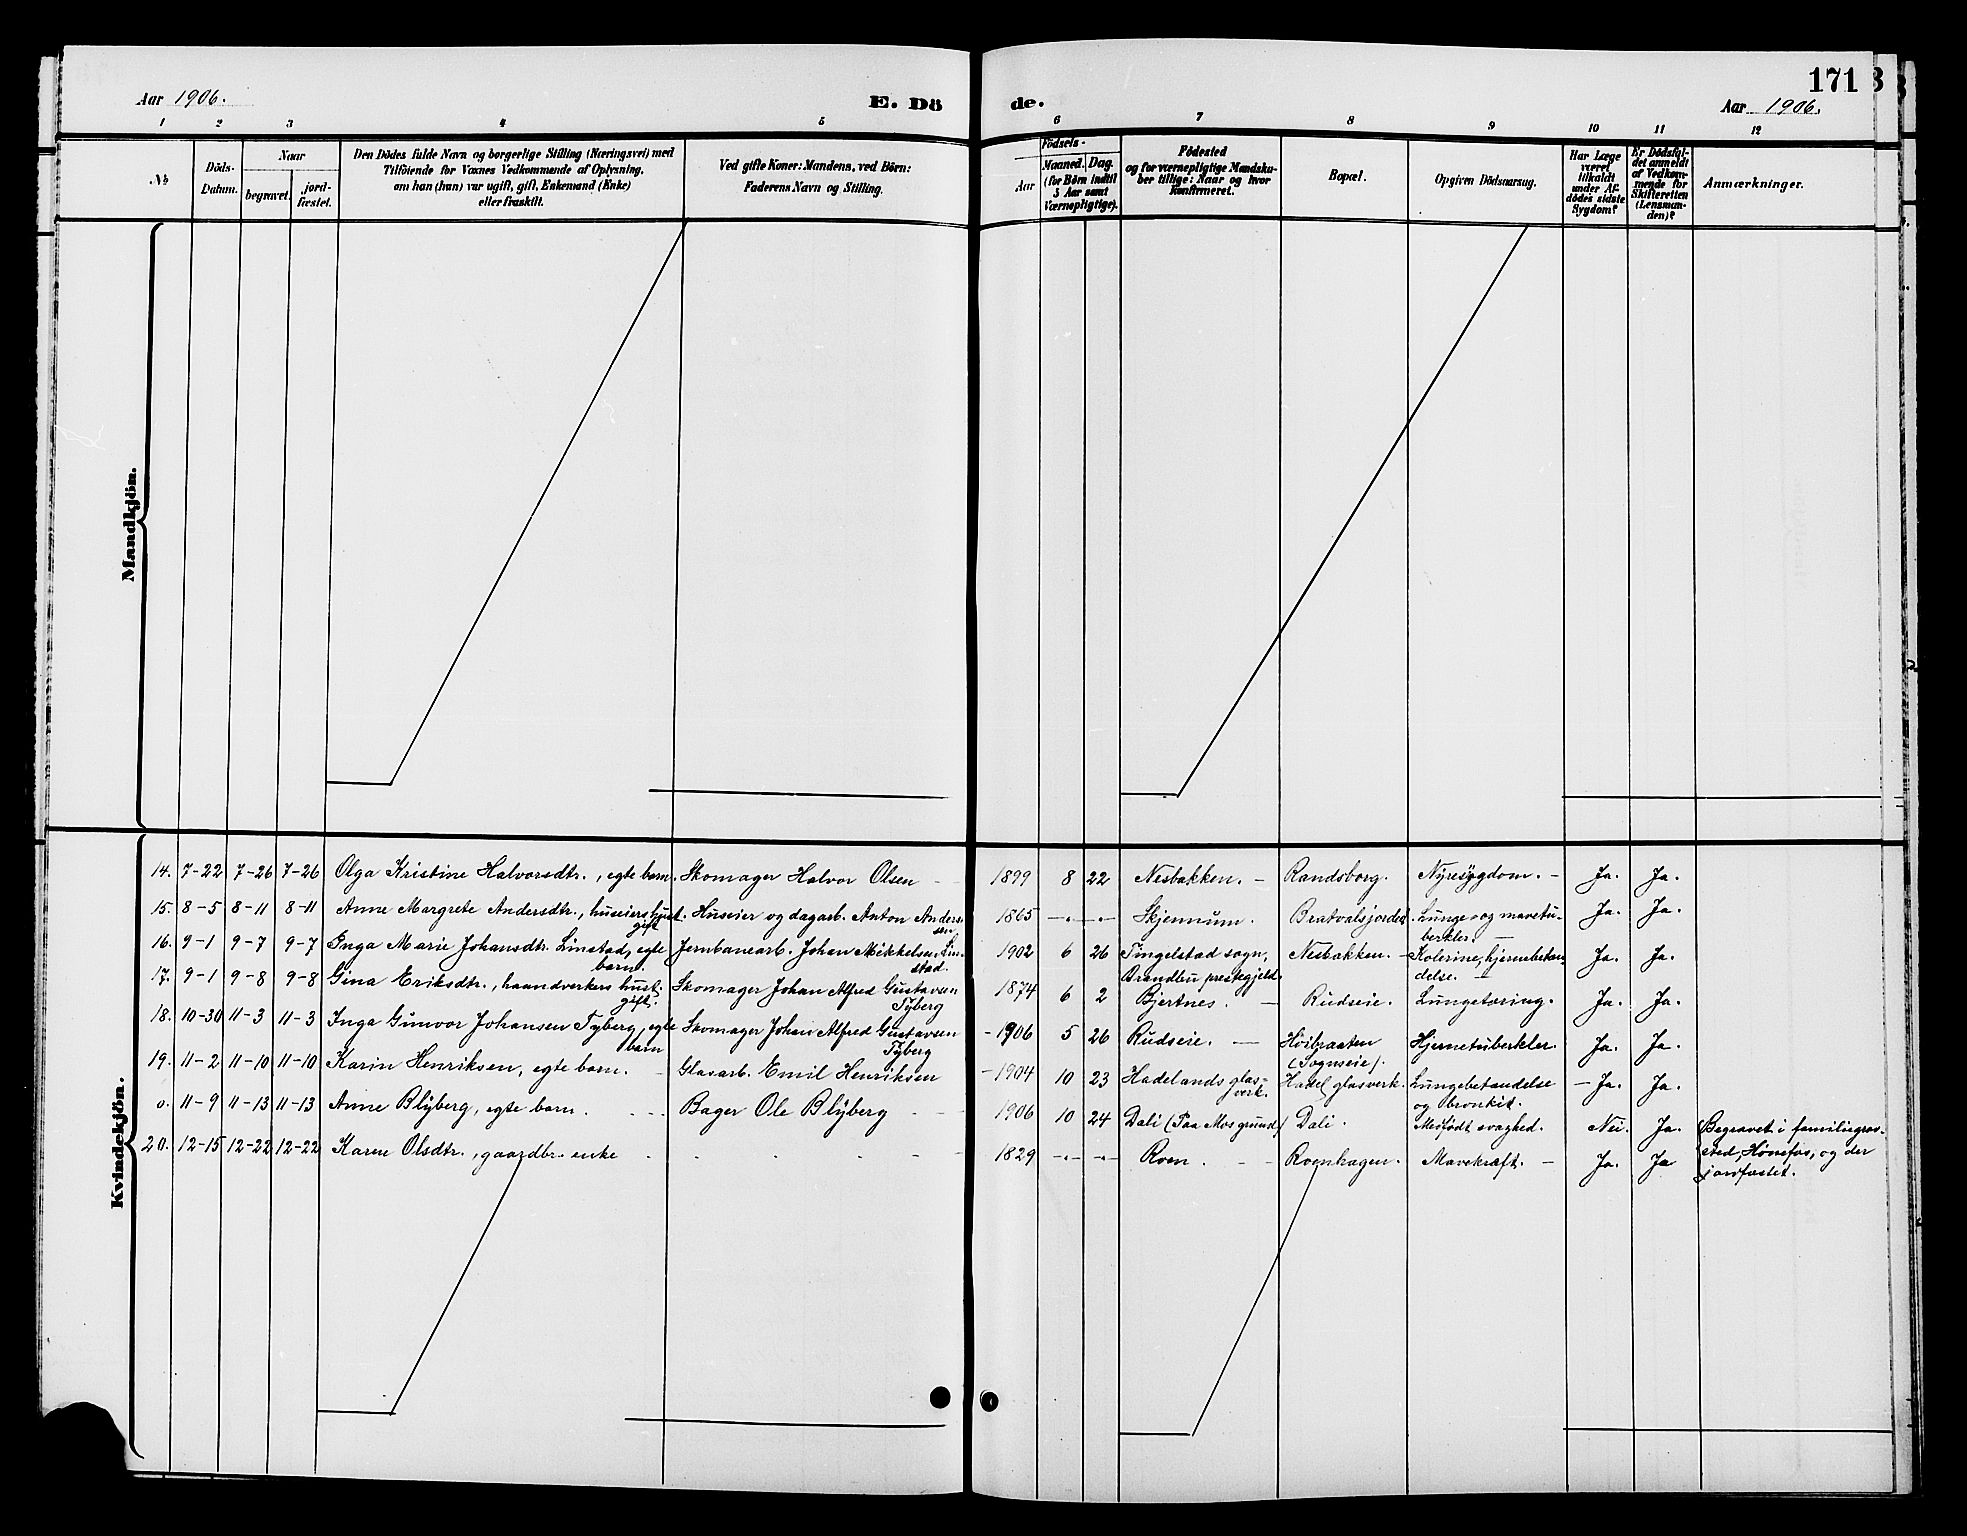 171
Aar 1906. E. Dö de. Aar 1906.
1 2 3 4 5 6 7 8 9 10 11 12
№
Döds-
Datum.
Naar
begravet.
jord-
fæstet.
Den Dödes fulde Navn og borgerlige Stilling (Næringsvei) med
Tilföiende for Voxnes Vedkommende af Oplysning,
om han (hun) var ugift, gift, Enkemand (Enke)
eller fraskilt.
Ved gifte Koner: Mandens, ved Börn:
Faderens Navn og Stilling.
Födsels-
Aar
Maaned.
Dag.
(for Börn indtil
5 Aar samt
Værnepligtige).
Födested
og for værnepligtige Mandska-
ber tillige: Naar og hvor
Konfirmeret.
Bopæl.
Opgiven Dödsaarsag.
Har Læge
været
tilkaldt
under Af-
dödes sidste
Sygdom?
Er Dödsfal-
det anmeldt
af Vedkom-
mende for
Skifteretten
(Lensman-
den)?
Anmærkninger.
Mandkjön.
Kvindekjön.
14. 7-22 7-26 7-26 Olga Kristine Halvorsdtr., egte barn. Skomager Halvor Olsen 1899 8 22 Nesbakken. Randsborg. Nyresygdom. Ja. Ja.
15. 8-5 8-11 8-11 Anne Margrete Andersdtr., huseiers hust. Huseier og dagarb. Anton Anders- 1865 Skjennum. Bratvalsjordet. Lunge- og mavetu- Ja. Ja.
gift sen berkler.
16. 9-1 9-7 9-7 Inga Marie Johansdtr. Linstad, egte Jernbanearb. Johan Mikkelsen Lin- 1902 6 26 Tingelstad sogn, Nesbakken. Kolerine, hjernebetæn- Ja. Ja.
barn. stad. Brandbu prestegjeld delse.
17. 9-1 9-8 9-8 Gina Eriksdtr., haandverkers hust. Skomager Johan Alfred Gustavsen 1874 6 2 Bjertnes. Rudseie. Lungetæring. Ja. Ja.
gift. Tyberg
18. 10-30 11-3 11-3 Inga Gunvor Johansen Tyberg, egte Skomager Johan Alfred Gustavsen 1906 5 26 Rudseie. Høibraaten Hjernetuberkler. Ja. Ja.
barn Tyberg (Sognseie).
19. 11-2 11-10 11-10 Karin Henriksen, egte barn. Glasarb. Emil Henriksen 1904 10 23 Hadelands glas- Hadel glasverk. Lungebetændelse Ja. Ja.
verk. og bronkit.
o. 11-9 11-13 11-13 Anne Blÿberg, egte barn. Bager Ole Blÿberg 1906 10 24 Dali (Paa Mosgrund) Dali. Medfødt svaghed. Nei. Ja. Begravet i familiegrav-
sted, Hønefos, og der
jordfæstet.
20. 12-15 12-22 12-22 Karen Olsdtr., gaardbr. enke 1829 Roen. Roenhagen. Mavekræft. Ja. Ja